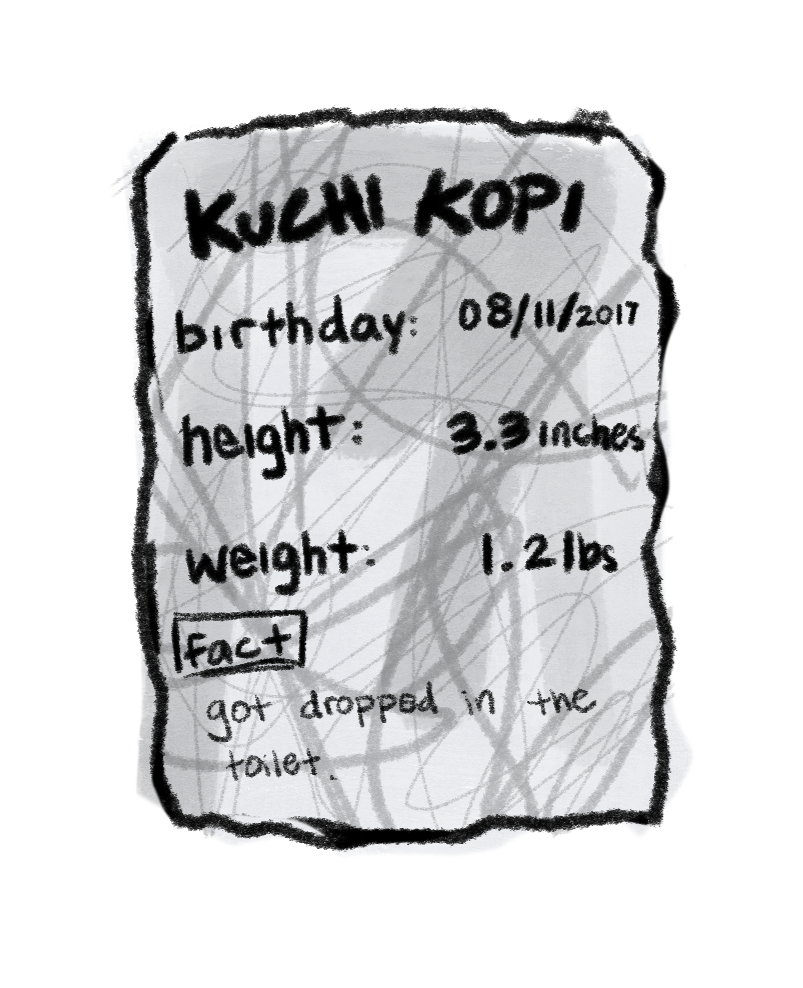 KUCHI KOPI
birthday: 08/11/2017
height: 3.3 inches
weight: 1.2 lbs
fact
got dropped in the
toilet.